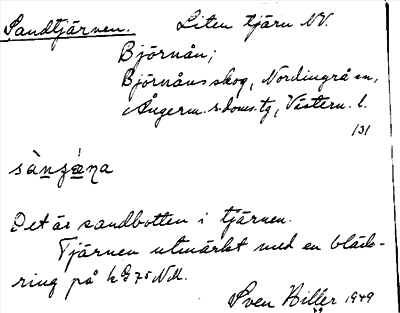 Sandtjärnen. Liten tjärn NV.
Björnån;
Björnåns skog, Nordingrå sn,
Ångerm. s. doms. tg, Västern. l.
131
Det är sandbotten i tjärnen.
Tjärnen utmärkt med en blåds-
ring på k G 75 NM.
Sven Hiller 1949